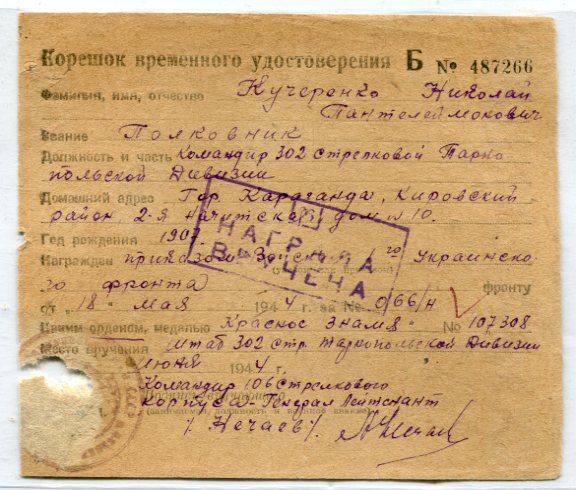 Корешок временного удостоверения Б № 487266
Фамилия, имя, отчество Кучеренко Николай
Пантелеймонович
Звание Полковник
Должность и часть Командир 302 стрелковой Тарно
польской Дивизии
Домашний адрес Гор. Караганда, Кировский
район, 2-я дом № 10.
Год рождения
Награжден приказом Войскам 1го Украинско-
го фронта фронту
от "18" мая 1944 г. за № 066/н
Каким орденом, медалью Красное Знамя" № 107308
Место вручения штаб 302 стр. тарнопольской Дивизии
июня 1944 г.
Командир 106 стрелкового
корпуса- Генерал Лейтенант
(занимаемая должность и военное звание)
/Нечаев/.
НАГРАДА
ВРУЧЕНА